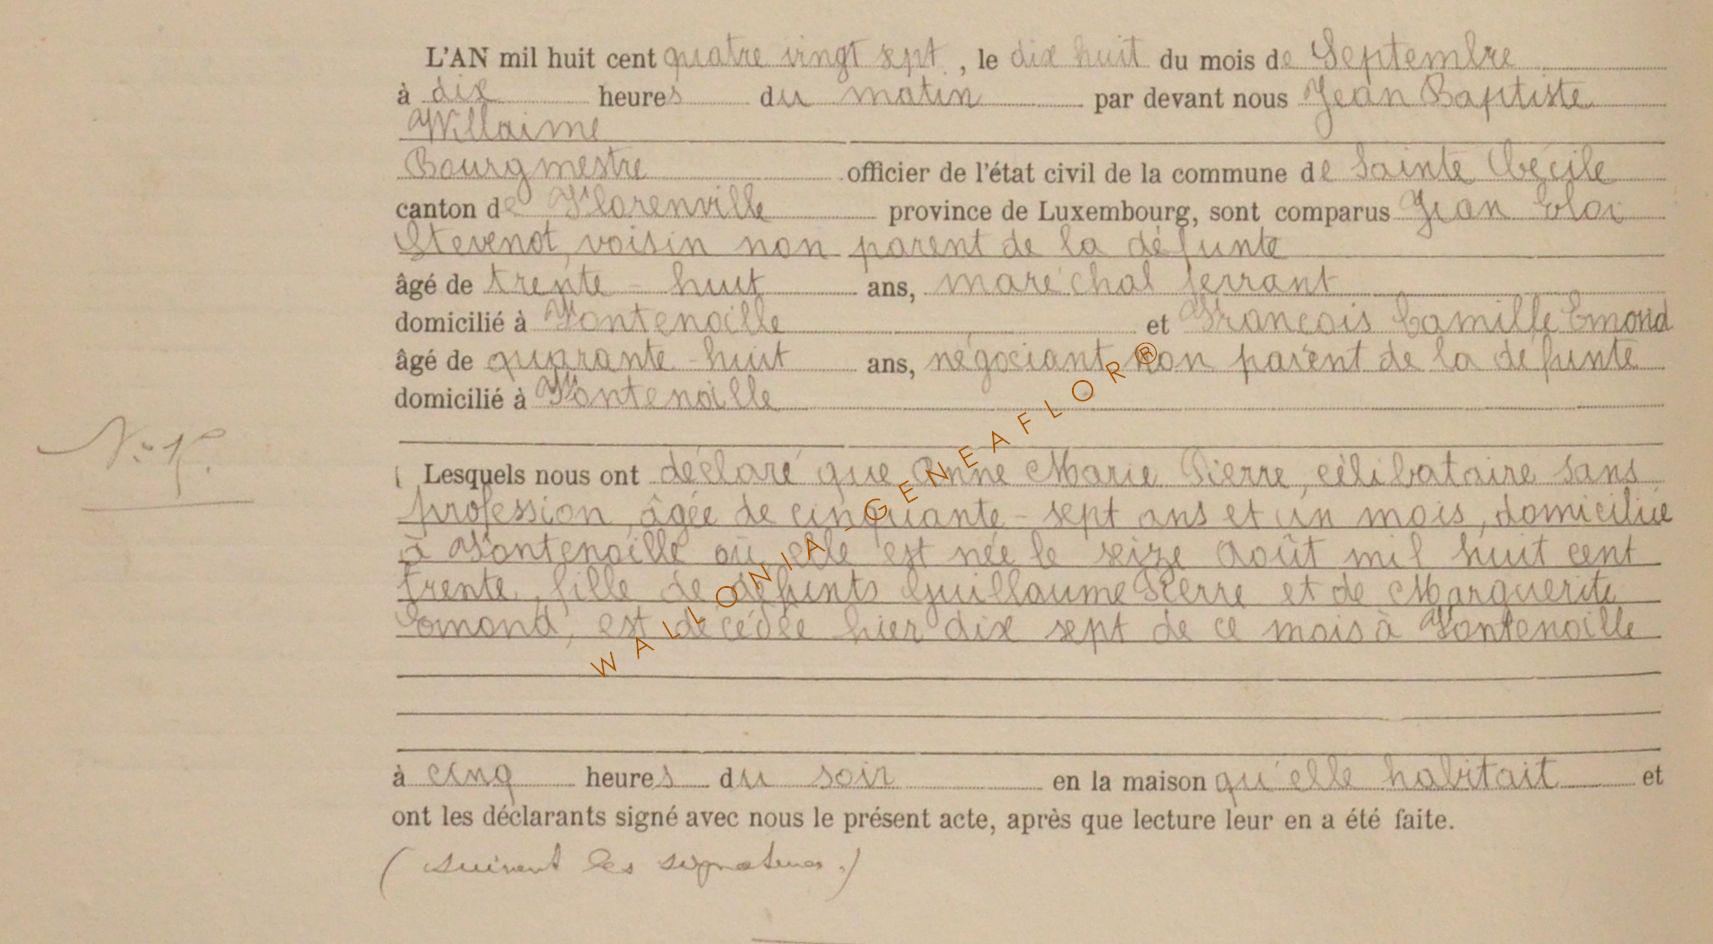 L'AN mil huit cent quatre vingt sept, le dix huit du mois de Septembre
à dix heures du matin par devant nous Jean Baptiste
Willaime
Bourgmestre officier de l'état civil de la commune de Sainte Cécile
canton de Florenville province de Luxembourg, sont comparus Jean Eloi
Stevenot, voisin non parent de la défunte
âgé de trente-huit ans, maréchal ferrant
domicilié à Fontenoille et François Camille Emond
âgé de quarante-huit ans, négociant non parent de la défunte
domicilié à Fontenoille
Lesquels nous ont déclaré que Anne Marie Pierre, célibataire sans
profession, âgée de cinquante-sept ans et un mois, domiciliée
à Fontenoille où elle est née le seize Août mil huit cent
trente, fille de défunts Guillaume Pierre et de Marguerite
Emond, est décédée hier dix sept de ce mois à Fontenoille
à cinq heures du soir en la maison qu'elle habitait et
ont les déclarants signé avec nous le présent acte, après que lecture leur en a été faite.
(suivent les signatures.)
WALLONIA-GENEAFLOR®